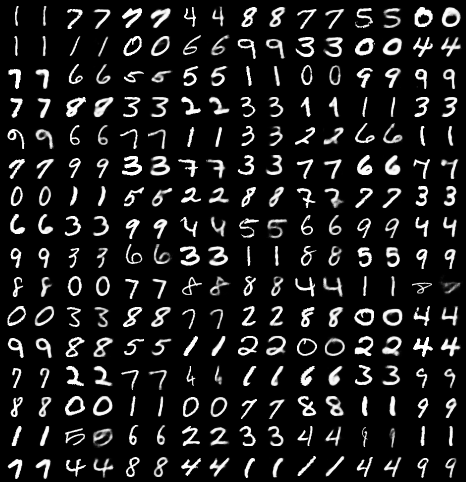 1 1 7 7 7 7 4 4 8 8 7 7 5 5 0 0
1 1 1 1 0 0 6 6 9 9 3 3 0 0 4 4
7 7 6 6 5 5 5 5 1 1 0 0 9 9 9 9
7 7 8 8 3 3 2 2 3 3 1 1 1 1 3 3
9 9 6 6 7 7 1 1 3 3 2 2 6 6 1 1
7 7 9 9 3 3 7 7 3 3 7 7 6 6 7 7
0 0 1 1 5 5 2 2 8 8 7 7 7 7 3 3
6 6 3 3 9 9 4 4 5 5 6 6 9 9 4 4
9 9 3 3 6 6 3 3 1 1 8 8 5 5 9 9
8 8 0 0 7 7 8 8 8 8 4 4 1 1 8
0 0 3 3 8 8 7 7 2 2 8 8 0 0 4 4
9 9 8 8 5 5 1 1 2 2 0 0 2 2 4 4
7 7 2 2 7 7 4 4 1 1 6 6 3 3 9 9
8 8 0 0 1 1 0 0 7 7 8 8 1 1 9 9
1 1 5 5 6 6 2 2 3 3 4 4 9 9 1 1
7 7 4 4 8 8 4 4 1 1 1 1 4 4 9 9